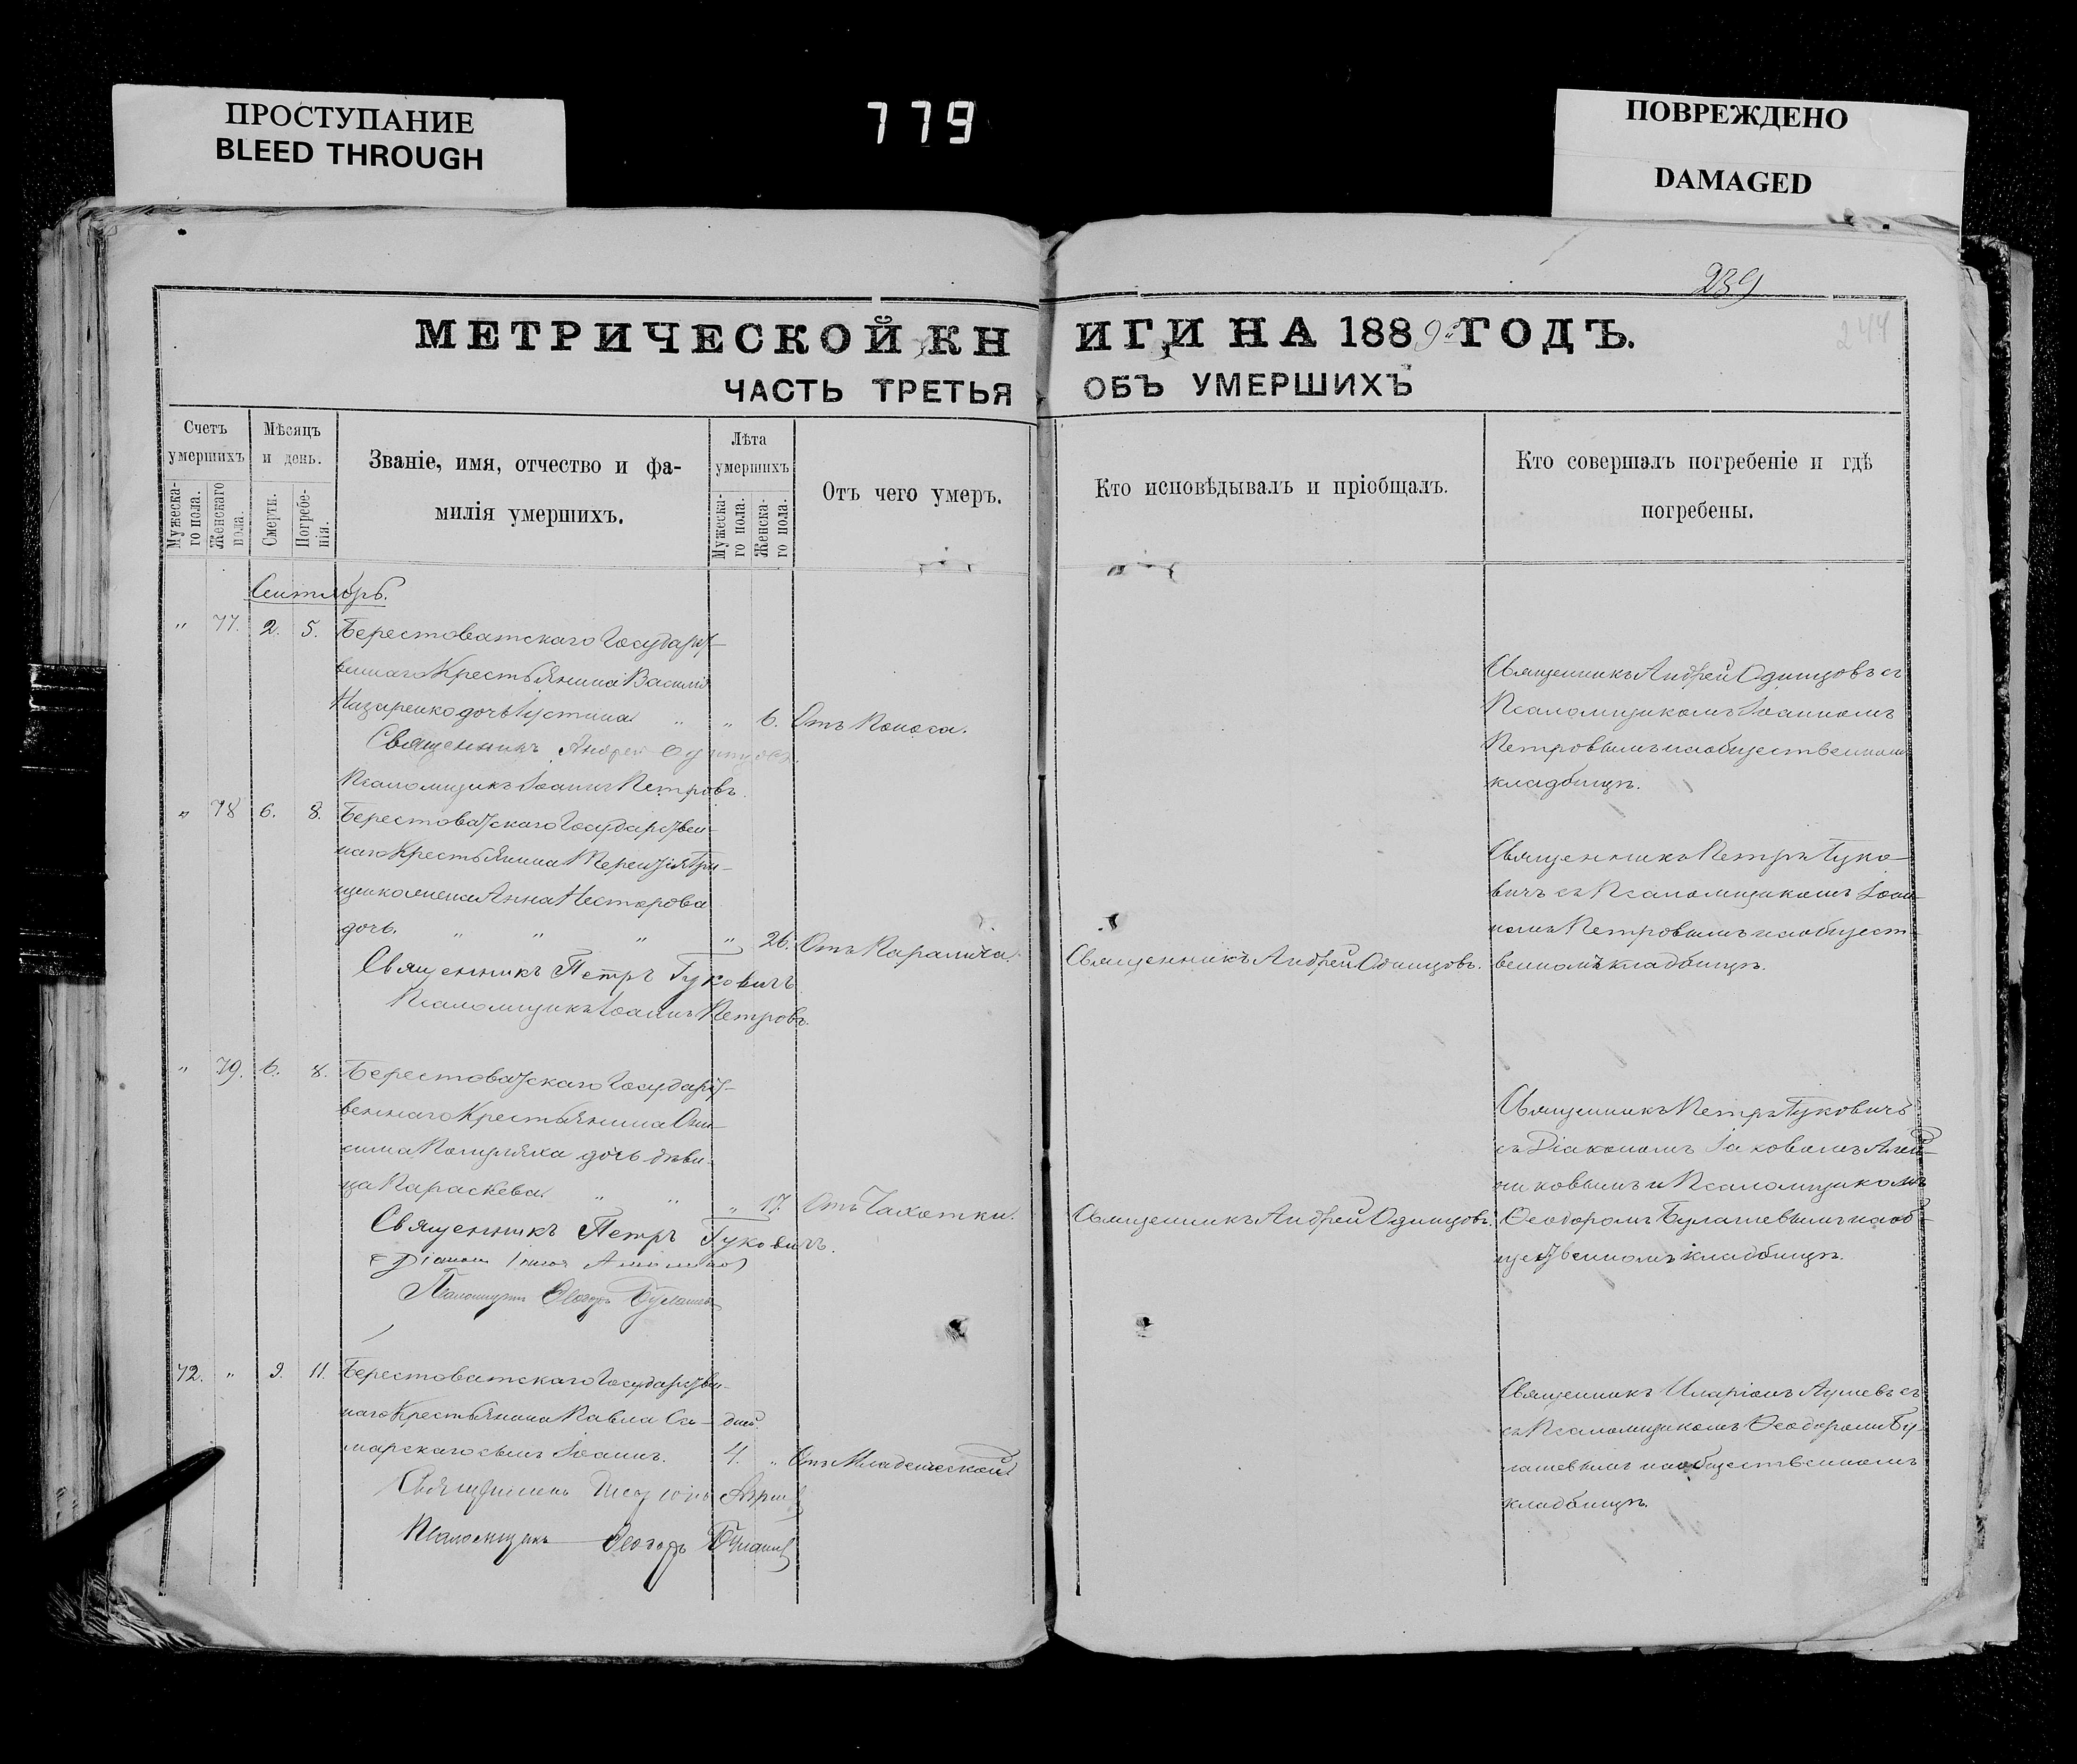 ПРОСТУПАНИЕ
BLEED THROUGH
779
ПОВРЕЖДЕНО
DAMAGED
239
244
МЕТРИЧЕСКОЙ КНИГИ НА 1889 ГОДЪ.
ЧАСТЬ ТРЕТЬЯ ОБЪ УМЕРШИХЪ
Счетъ умершихъ
Мужескаго пола.
Женскаго пола.
Мѣсяцъ и день.
Смерти.
Погребенія.
Званіе, имя, отчество и фамилія умершихъ.
Лѣта умершихъ
Мужескаго пола.
Женскаго пола.
Отъ чего умеръ.
Кто исповѣдывалъ и пріобщалъ.
Кто совершалъ погребеніе и гдѣ погребены.
Сентябрь.
" 77. 2. 5. Берестоватскаго Государст-
веннаго Крестьянина Василія
Назаренко дочь Іустина " " 6. Отъ Поноса.
Священникъ Андрей Одинцовъ.
Псаломщикъ Іоаннъ Петровъ.
Священникъ Андрей Одинцовъ съ
Псаломщикомъ Іоанномъ
Петровымъ на общественномъ
кладбищѣ.
" 78 6. 8. Берестоватскаго Государствен-
наго Крестьянина Терентія Гри-
щенко жена Анна Несторова
дочь. " " " " 26. Отъ Паралича.
Священникъ Петръ Гуковичъ
Псаломщикъ Іоаннъ Петровъ.
Священникъ Андрей Одинцовъ.
Священникъ Петръ Гуко-
вичъ съ Псаломщикомъ Іоан-
номъ Петровымъ на общест-
венномъ кладбищѣ.
" 79. 6. 8. Берестоватскаго Государст-
веннаго Крестьянина Они-
сима дочь дѣви-
ца Параскева. " " " 17. Отъ Чахотки.
Священникъ Петръ Гуковичъ.
Діаконъ
Псаломщикъ Ѳеодоръ Булашевъ
Священникъ Андрей Одинцовъ.
Священникъ Петръ Гуковичъ
съ Діакономъ Іаковомъ
и Псаломщикомъ
Ѳеодоромъ Булашевымъ на об-
щественномъ кладбищѣ.
72. " 9. 11. Берестоватскаго Государствен-
наго Крестьянина Павла Са- дней
марскаго сынъ Іоаннъ. 4. " Отъ Младенческой
Священникъ
Псаломщикъ Ѳеодоръ Булашевъ
Священникъ Иларіонъ съ
съ Псаломщикомъ Ѳеодоромъ Бу-
лашевымъ на общественномъ
кладбищѣ.